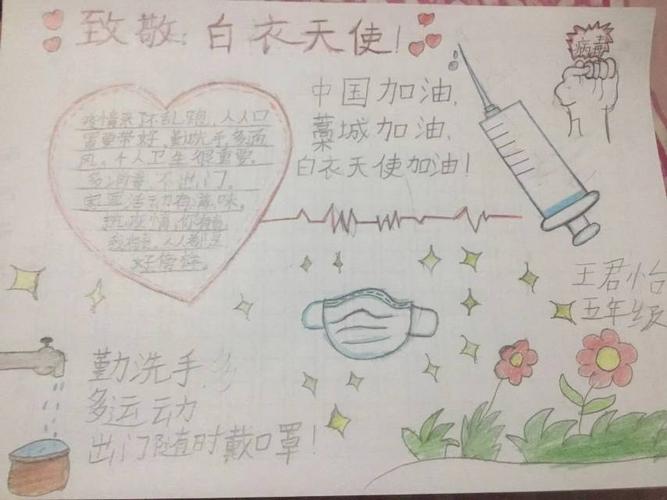 致敬:白衣天使!
病毒
疫情来了不乱跑,人人口
罩要带好,勤洗手,多通
风,个人卫生很重要。
多消毒,不出门。
家里活动有滋味。
抗疫情,你有我
人人都是
好榜样。
中国加油,
藁城加油,
白衣天使加油!
王君怡
五年级
勤洗手
多运动
出门随时戴口罩!